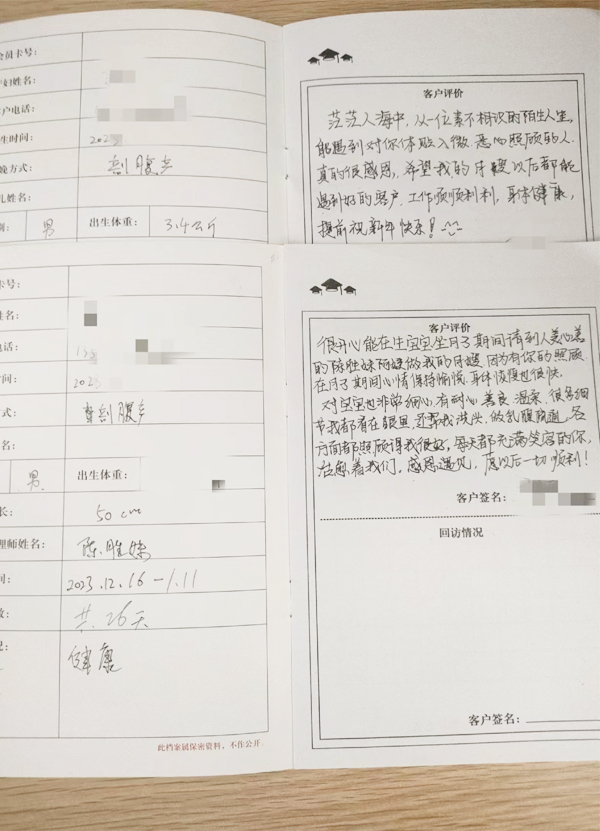 会员卡号:
妇姓名:
户电话:
生时间: 202
娩方式: 剖腹产
儿姓名:
别: 男 出生体重: 3.4公斤
客户评价
茫茫人海中,从一位素不相识的陌生人生,
能遇到对你体贴入微.悉心照顾的人.
真的很感恩,希望我的月嫂以后都能
遇到好的客户.工作顺顺利利,身体健康,
提前祝新年快乐!
卡号:
姓名:
电话:
时间: 2023
式: 剖腹产
名:
男 出生体重:
长: 50cm
理师姓名: 陈胜妹
间: 2023.12.16-1.11
数: 共26天
况: 健康
此档案属保密资料,不作公开
客户评价
很开心能在生宝宝坐月子期间请到人美心善
的陈胜妹阿嫂做我的月嫂,因为有你的照顾
在月子期间心情保持愉悦,身体恢复也很快.
对宝宝也非常细心,有耐心,善良,温柔,很多细
节我都看在眼里,还帮我洗头,做乳腺疏通,各
方面都照顾得我很好,每天都充满笑容的你,
治愈着我们,感恩遇见,愿以后一切顺利!
客户签名:
回访情况
客户签名: